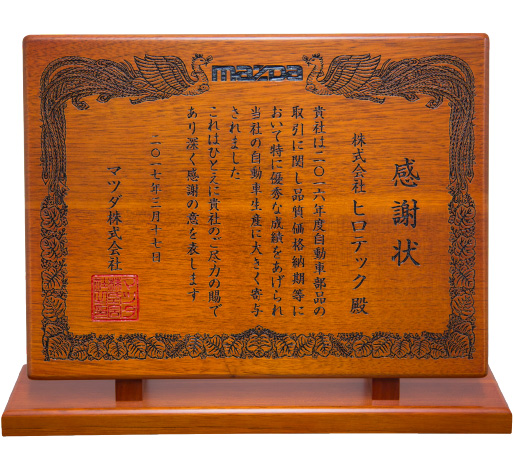 mazda
感謝状
株式会社 ヒロテック 殿
貴社は二〇一六年度自動車部品の
取引に関し品質価格納期等に
おいて特に優秀な成績をあげられ
当社の自動車生産に大きく寄与
されました
これはひとえに貴社のご尽力の賜で
あり深く感謝の意を表します
二〇一七年二月十七日
マツダ株式会社